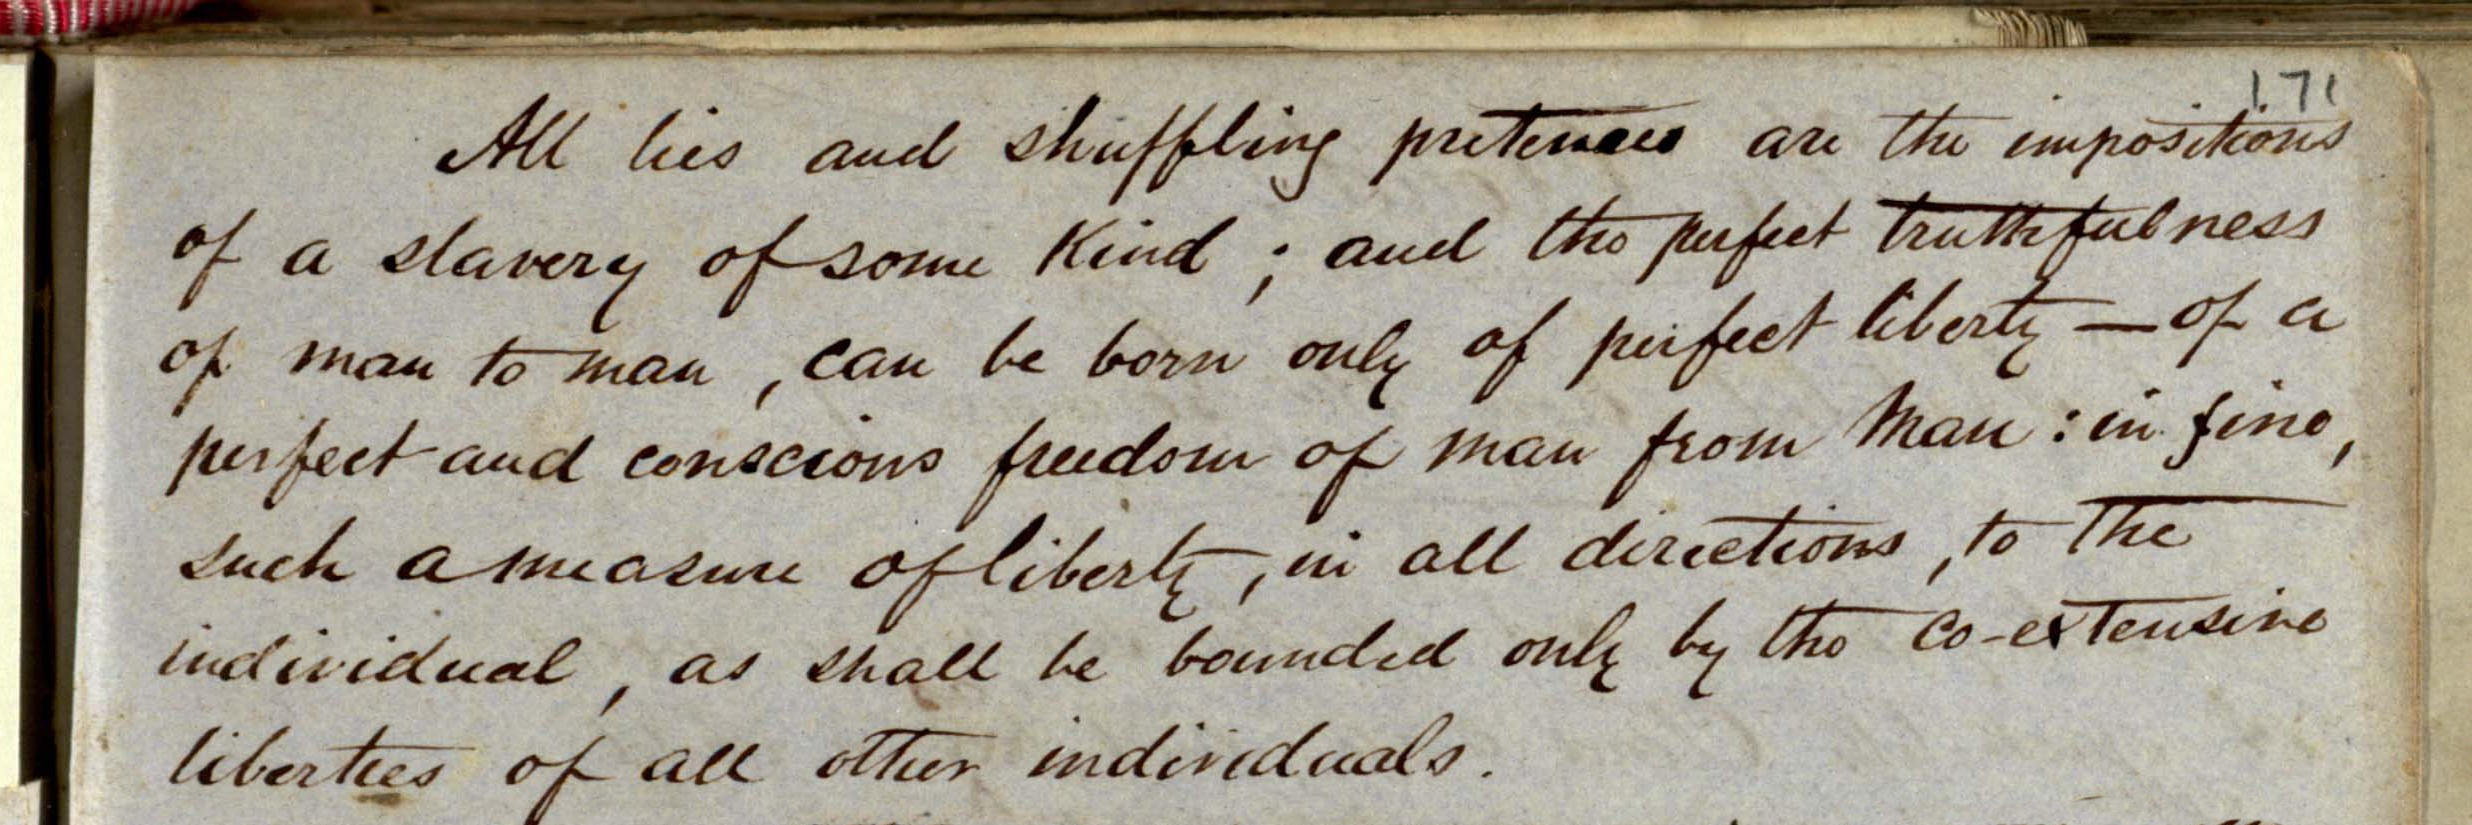 171
All lies and shuffling pretences are the impositions
of a slavery of some Kind ; and the perfect truthfulness
of man to man , can be born only of perfect liberty — of a
perfect and conscious freedom of man from Man : in fine,
such a measure of liberty, in all directions, to the
individual, as shall be bounded only by the co-extensive
liberties of all other individuals.